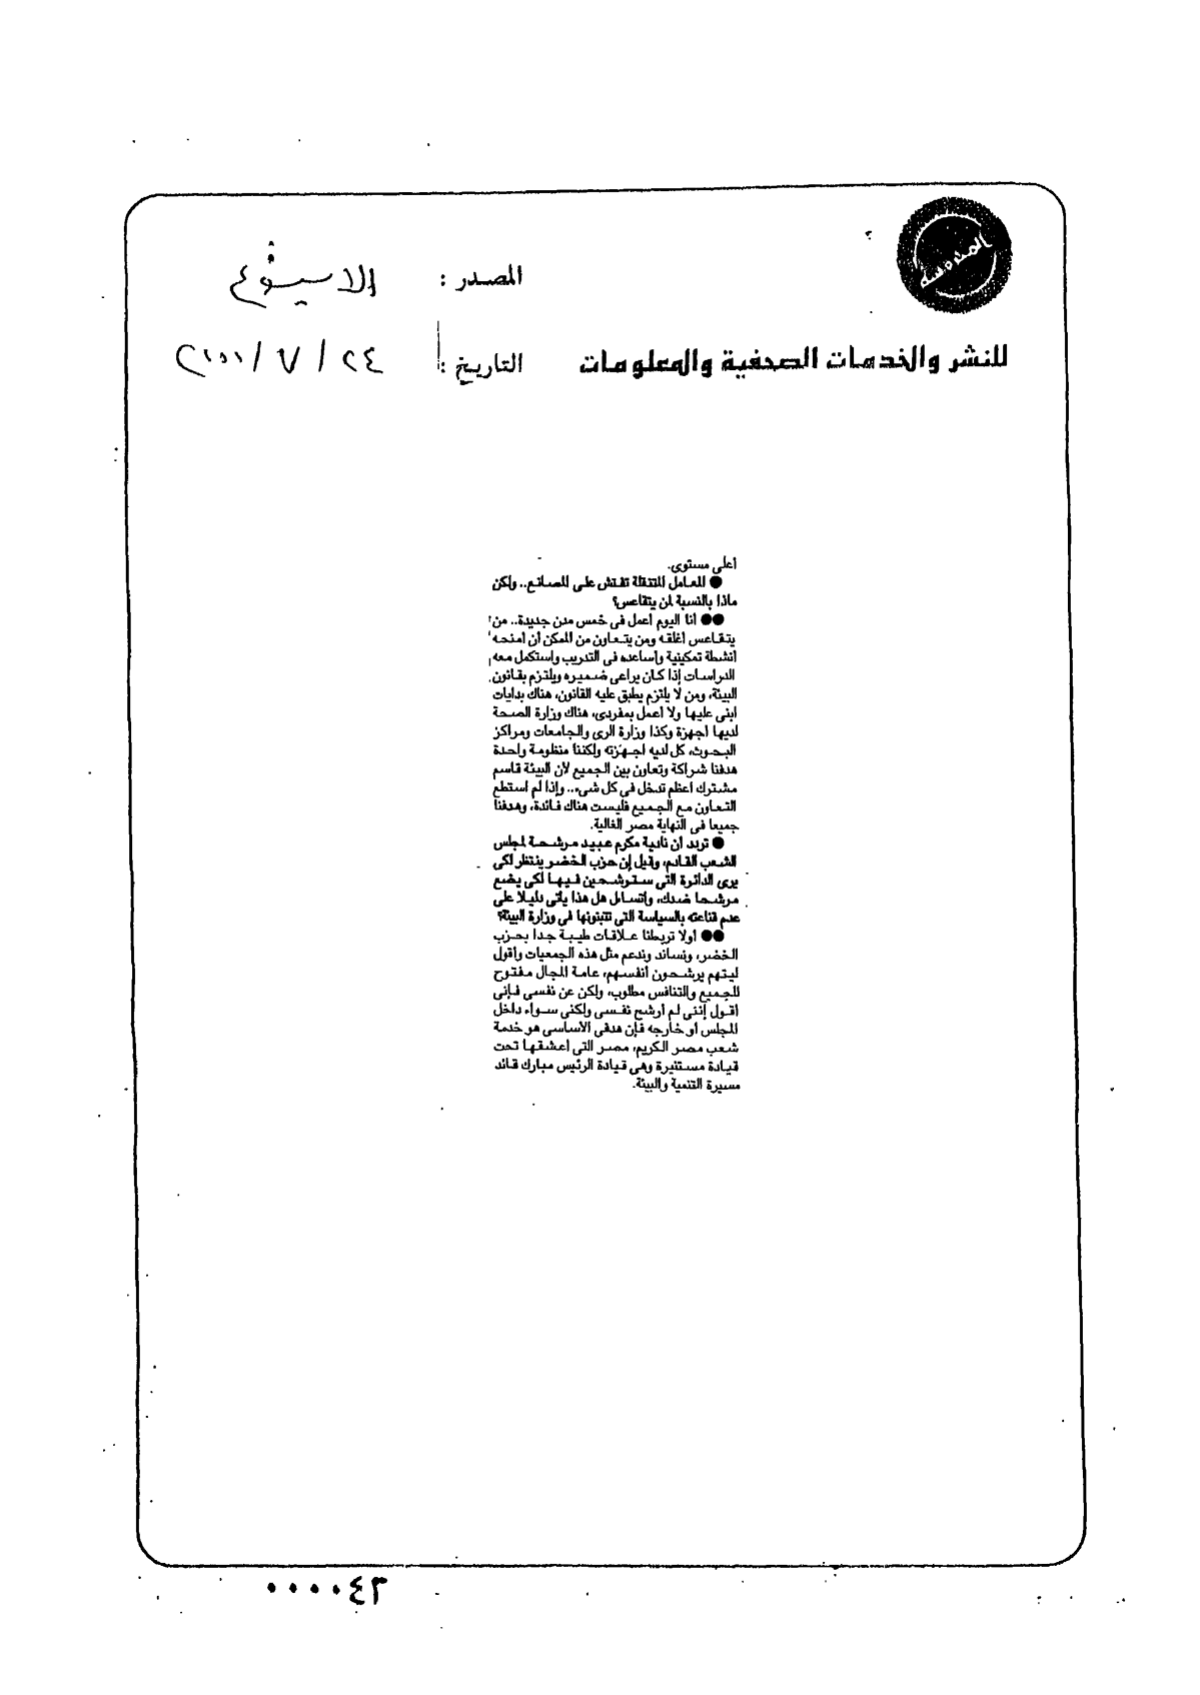 المصدر : الاسبوع
للنشر والخدمات الصحفية والمعلومات
التاريخ : ٢٤ / ٧ /
أعلى مستوى.
● المعامل المتنقلة تفتش على المصانع.. ولكن
ماذا بالنسبة لمن يتقاعس؟
●● أنا اليوم أعمل فى خمس مدن جديدة.. من
يتقاعس أغلقه ومن يتعاون من الممكن أن أمنحه
أنشطة تمكينية وأساعده فى التدريب واستكمل معه
الدراسات إذا كان يراعى ضميره ويلتزم بقانون
البيئة، ومن لا يلتزم يطبق عليه القانون، هناك بدايات
ابنى عليها ولا أعمل بمفردى، هناك وزارة الصحة
لديها أجهزة وكذا وزارة الرى والجامعات ومراكز
البحوث، كل لديه أجهزته ولكننا منظومة واحدة
هدفنا شراكة وتعاون بين الجميع لأن البيئة قاسم
مشترك أعظم تدخل فى كل شىء.. وإذا لم استطع
التعاون مع الجميع فليست هناك فائدة، وهدفنا
جميعا فى النهاية مصر الغالية.
● تردد أن نادية مكرم عبيد مرشحة لمجلس
الشعب القادم، وقيل إن حزب الخضر ينتظر لكى
يرى الدائرة التى سترشحين فيها لكى يضع
مرشحا ضدك، واتساءل هل هذا يأتى دليلا على
عدم قناعته بالسياسة التى تتبنونها فى وزارة البيئة؟
●● أولا تربطنا علاقات طيبة جدا بحزب
الخضر، ونساند وندعم مثل هذه الجمعيات وأقول
ليتهم يرشحون أنفسهم، عامة المجال مفتوح
للجميع والتنافس مطلوب، ولكن عن نفسى فإنى
أقول إننى لم أرشح نفسى ولكنى سواء داخل
المجلس أو خارجه فإن هدفى الأساسى هو خدمة
شعب مصر الكريم، مصر التى أعشقها تحت
قيادة مستنيرة وهى قيادة الرئيس مبارك قائد
مسيرة التنمية والبيئة.
٠٠٠٠٤٣